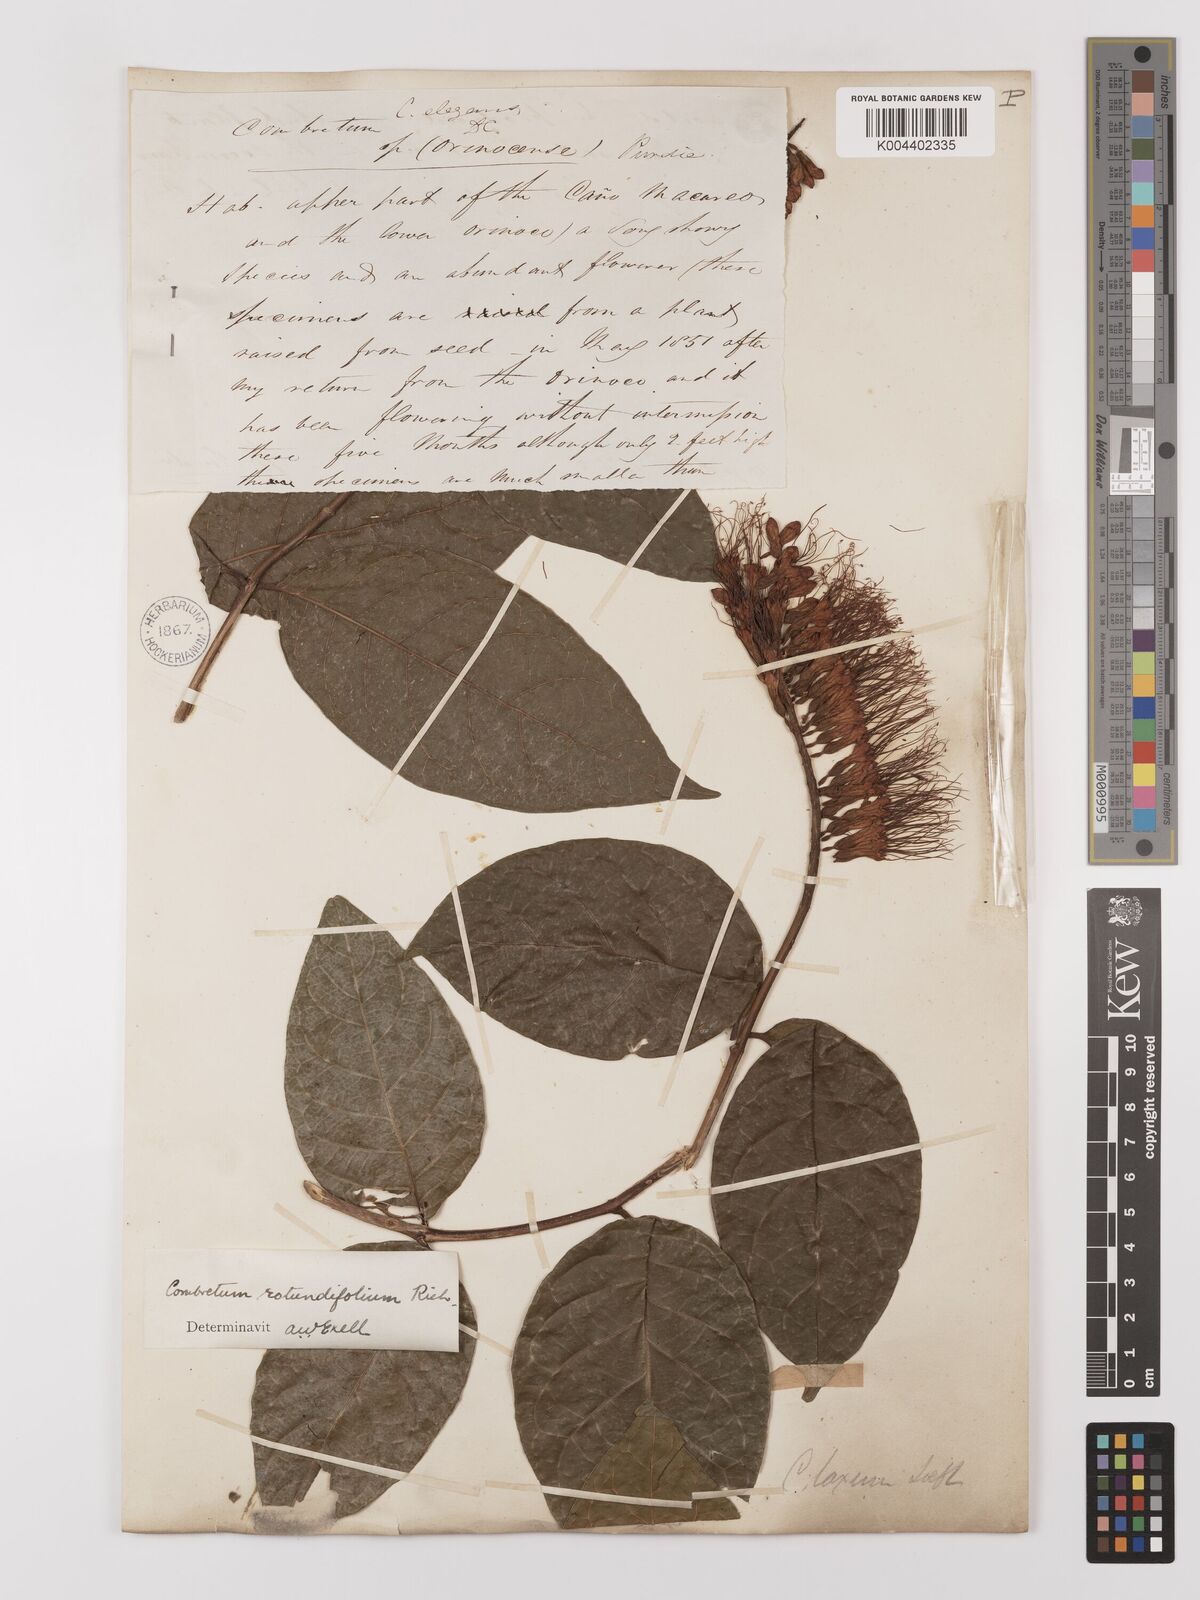 ROYAL BOTANIC GARDENS KEW
K004402335
P
C. elegans
DC.
Combretum
sp. (Orinocense) Purdie.
Hab. upper part of the Caño Macareo
and the lower Orinoco) a showy
species and an abundant flowerer (these
specimens are raised from a plant
raised from seed in May 1851 after
my return from the Orinoco and it
has been flowering without intermission
these five Months although only 2 feet high
these specimens are much smaller than
HERBARIUM
1867.
HOOKERIANUM
Combretum rotundifolium Rich.
Determinavit A.W. Exell
C. laxum Loefl
inches
centimeters
Density
Don Williams
M000995
Kew
Royal Botanic Gardens
copyright reserved
10 9 8 7 6 5 4 3 2 1 0
cm